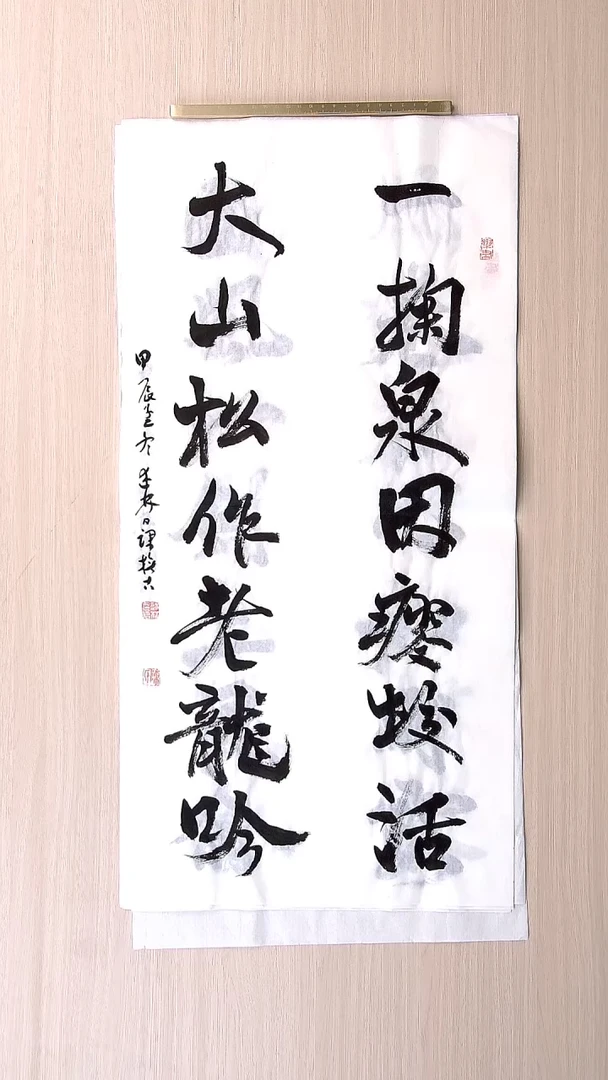 一掬泉因瘦蛟活
大山松作老龍吟
甲辰孟冬日課